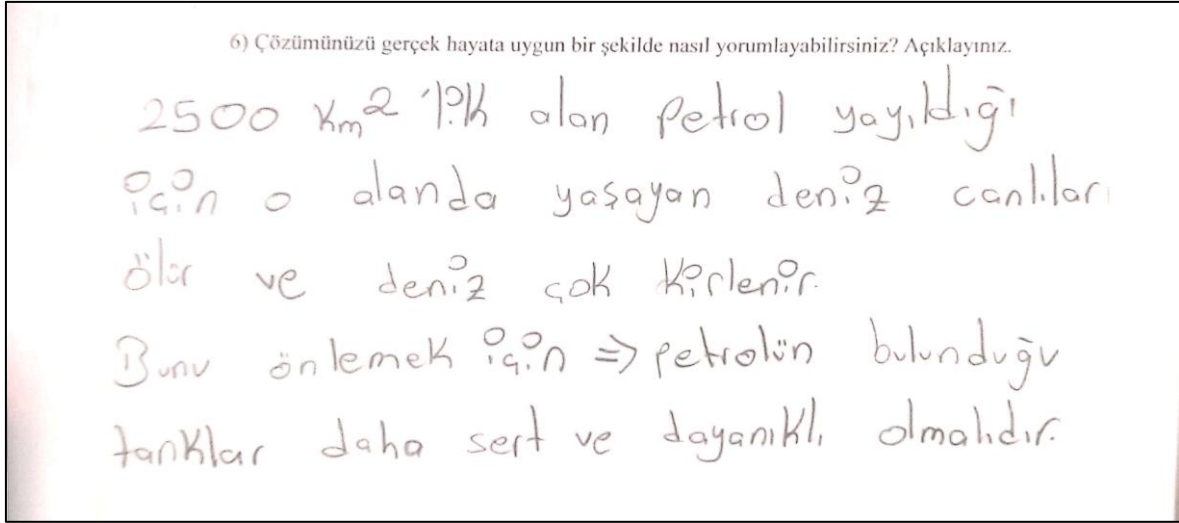 6) Çözümünüzü gerçek hayata uygun bir şekilde nasıl yorumlayabilirsiniz? Açıklayınız.
2500 km² 'lik alan petrol yayıldığı
için o alanda yaşayan deniz canlıları
ölür ve deniz çok kirlenir.
Bunu önlemek için => petrolün bulunduğu
tanklar daha sert ve dayanıklı olmalıdır.